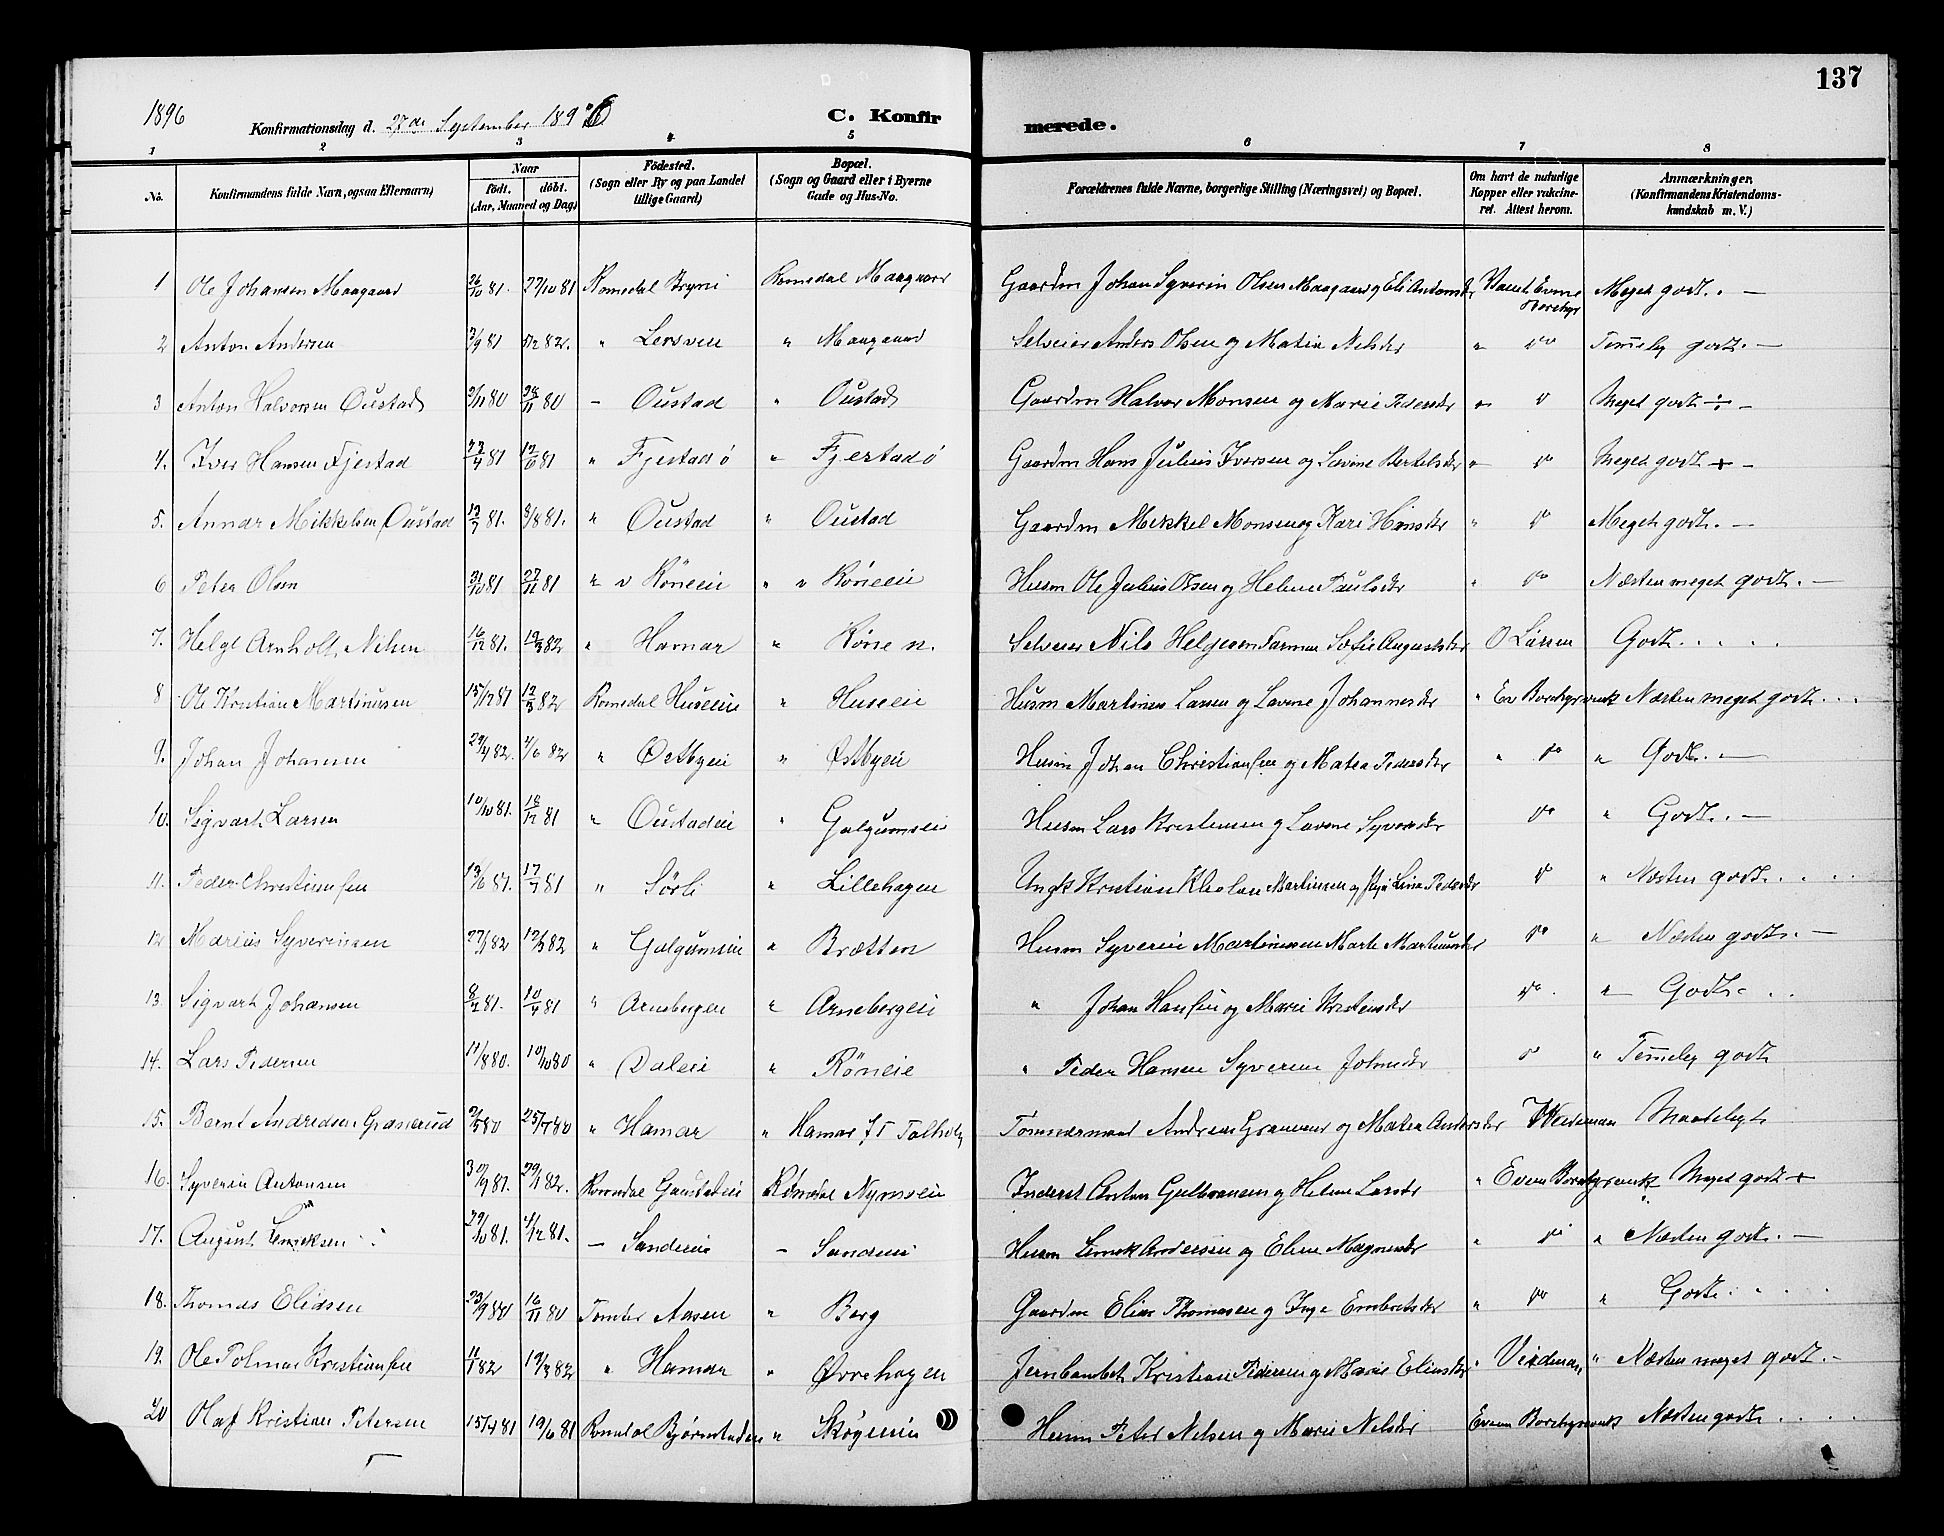 137
1896 Konfirmationsdag d. 27de September 1896 C. Konfirmerede.
1 2 3 4 5 6 7 8
No. Konfirmandens fulde Navn, ogsaa Efternavn) Naar født. døbt. (Aar, Maaned og Dag) Födested. (Sogn eller By og paa Landet tillige Gaard) Bopæl. (Sogn og Gaard eller i Byerne Gade og Hus-No. Forældrenes fulde Navne, borgerlige Stilling (Næringsvei) og Bopæl. Om havt de naturlige Kopper eller vakcineret. Attest herom. Anmærkninger, (Konfirmandens Kristendomskundskab m. V.)
1 Ole Johansen Maagaard 26/10 81. 27/10 81 Romedal Bryni Romedal Maagaard Gaardm Johan Syverin Olsen Maagaard og Eli Meget godt. —
2 Anton Andersen 3/9 81 82. " " Maagaard Selveier Anders Olsen og Matea Nelsdtr " do Temelig godt. —
3 Anton Halvorsen Oustad 2/11 80 28/11 80 — Oustad " Oustad Gaardm Halvor Monsen og Marie Pedersdtr " do Meget godt ÷ —
4. Iver Hansen Fjestad 22/4 81 12/6 81 " Fjestad ø " Fjestad ø Gaardm Hans Julius Iversen og Lovine Bertelsdtr " do Meget godt + —
5. Annar Mikkelsen Oustad 12/7 81. 8/8 81. " Oustad " Oustad Gaardm Mikkel Monsen og Kari Hansdtr " do Meget godt. —
6 Peter Olsen 31/10 81 27/11 81 " v Röneeie " v Röneeie Husm Ole Julius Olsen og Helene Paulsdtr " do Næsten meget godt. —
7. Helge Arnholt Nilsen 16/12 81. 19/3 82 " Hamar " Röne n. Selveier Nils Helgesen Sofie Augustsdtr O Larsen Godt. . . . .
8 Ole Kristian Martinusen 15/12 81 12/3 82 Romedal Huseeie " Huseeie Husm Martinus Larsen og Lovine Johannesdtr " Ev Borchgrevink Næsten meget godt. . . .
9. Johan Johansen 29/4 82. 4/6 82 " Østbyeie " Østbyeie Husm Johan Christiansen og Matea Pedersdtr " do " Godt. —
10. Sigvart Larsen 10/10 81. 18/12 81 " Oustadeie " Galgumseie Husm Lars Kristensen og Lovine Syversdtr do " Godt. —
11. Peder Christiansen 13/6 81. 17/7 81 " Sörli " Lillehagen Ungk Kristian Martinsen og Lina Pedersdtr do " Næsten godt. . . . .
12 Marius Syverinsen 27/1 82 12/3 82 " Galgumseie " Brætten Husm Syverin Martinusen Marte Martinusdtr do " Næsten godt. —
13. Sigvart Johansen 8/2 81. 10/4 81 " Arnebergeie " Arnebergeie " Johan Hansen og Marie Kristensdtr do " Godt. . .
14. Lars Pedersen 11/8 80. 10/10 80 " Daleeie " Röneeie " Peder Hansen Syverine Johnsdtr do " Temelig godt
15. Bernt Andreasen Græserud 2/5 80 25/7 80 " Hamar " Hamar Tømmermand Andreas og Matea Andersdtr Maadeligt
16. Syverin Antonsen 30/9 81. 29/1 82. Romedal Gaustadeie Romedal Nymseie Inderst Anton Gulbransen og Helene Larsdtr " Even Borchgrevink Meget godt +
17. August Lemeksen 29/10 81. 4/12 81. — Sandeeie — Sandeeie Husm Lemek Andersen og Eline Magnusdtr " do " Næsten godt. —
18. Thomas Eliasen 23/9 80 16/11 80 Tomter Aasen " Berg Gaardm Elias Thomasen og Inge Embretsdtr " do " Godt. . . . .
19. Ole Tolmar Kristiansen 11/1 82 19/3 82 " Hamar " Øvrehagen Jernbanbet. Kristian Pedersen og Marie Eliasdtr " " Næsten meget godt. —
20 Olaf Kristian Petersen 15/4 81 19/6 81 Romedal " Skögseie Husm Peter Nelsen og Marie Nelsdtr Even Borchgrevink Næsten godt. . . . .